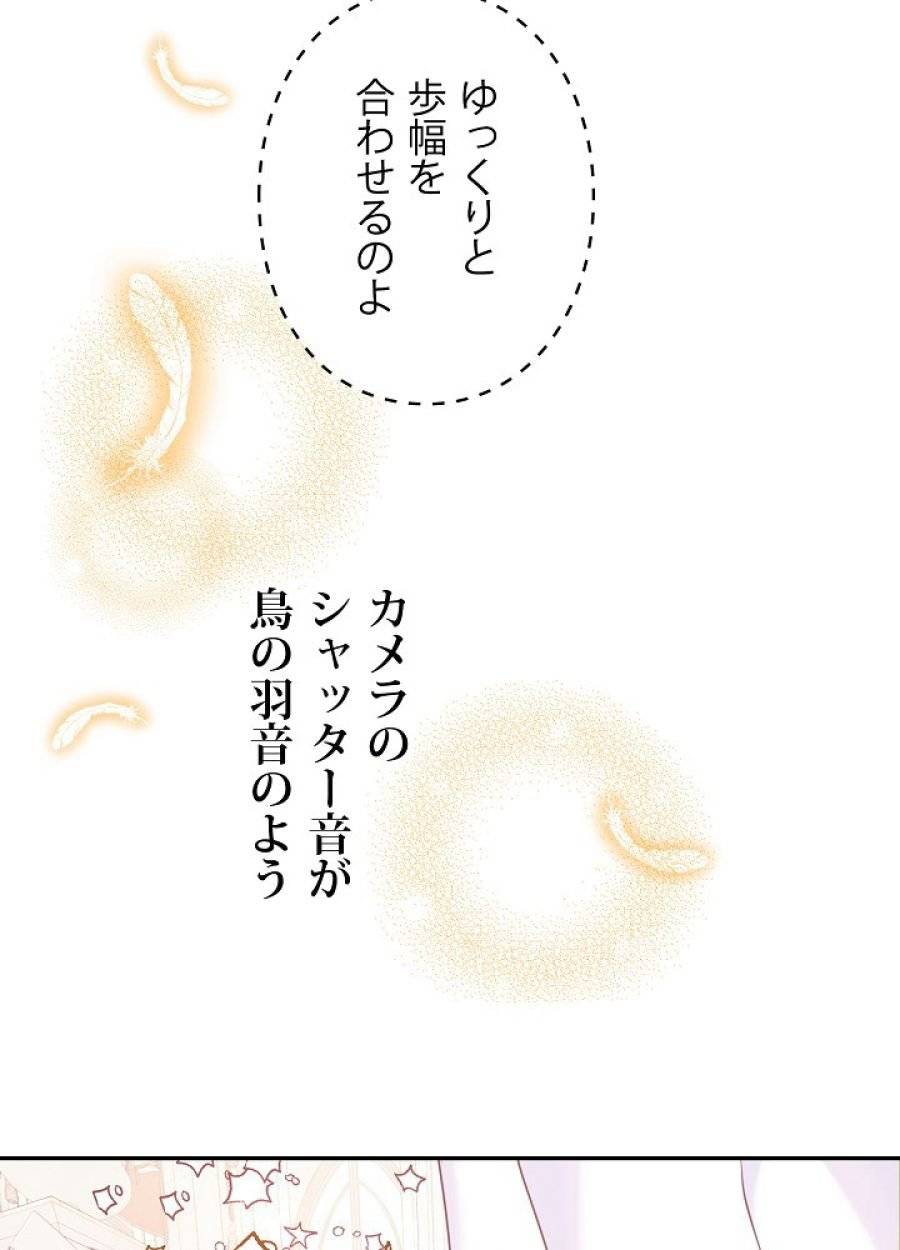 ゆっくりと
歩幅を
合わせるのよ
カメラの
シャッター音が
鳥の羽音のよう